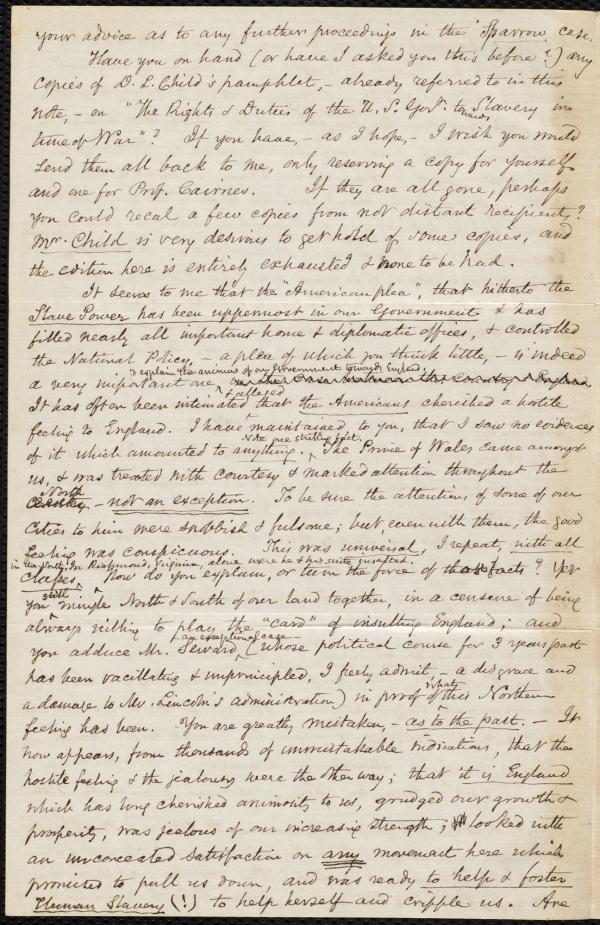 your advice as to any further proceedings in the Sparrow case.
Have you on hand (or have I asked you this before?) any
copies of D. L. Child's pamphlet, - already referred to in this
note, - on "The Rights & Duties of the U. S. Govt. towards Slavery in
time of War"? If you have, - as I hope, - I wish you would
send them all back to me, only reserving a copy for yourself
and one for Prof. Cairnes. If they are all gone, perhaps
you could recal a few copies from not distant recipients?
Mr. Child is very desirous to get hold of some copies, and
the edition here is entirely exhausted & none to be had.
It seems to me that the "American plea", that hitherto the
Slave Power has been uppermost in our Government & has
filled nearly all important home & diplomatic offices, & controlled
the National Policy, - a plea of which you think little, - is indeed
to explain the animus of our Government towards England.
a very important one,
& alleged
It has often been intimated that the Americans cherished a hostile
feeling to England. I have maintained to you, that I saw no evidences
Note one striking fact.
of it which amounted to anything. The Prince of Wales came amongst
us, & was treated with courtesy & marked attention throughout the
North
- not an exception. To be sure the attentions of some of our
Cities to him were snobbish & fulsome; but, even with them, the good
feeling was conspicuous. This was universal, I repeat, with all
in the North; in Richmond, Virginia, alone were he & his suite insulted.
Classes. Now do you explain, or turn the force of facts? Yet
still
you mingle North & South of our land together, in a censure of being
always willing to play the "card" of insulting England; and
an exceptional case -
you adduce Mr. Seward, (whose political course for 3 years past
has been vacillating & unprincipled, I freely admit, - a disgrace and
a damage to Mr. Lincoln's administration) in proof of what this Northern
feeling has been. You are greatly mistaken, - as to the past. - It
now appears, from thousands of unmistakable indications, that the
hostile feeling & the jealousy were the other way; that it is England
which has long cherished animosity to us, grudged our growth &
prosperity, was jealous of our increasing strength; looked with
an unconcealed satisfaction on any movement here which
promised to pull us down, and was ready to help & foster
Human Slavery (!) to help herself and cripple us. Are